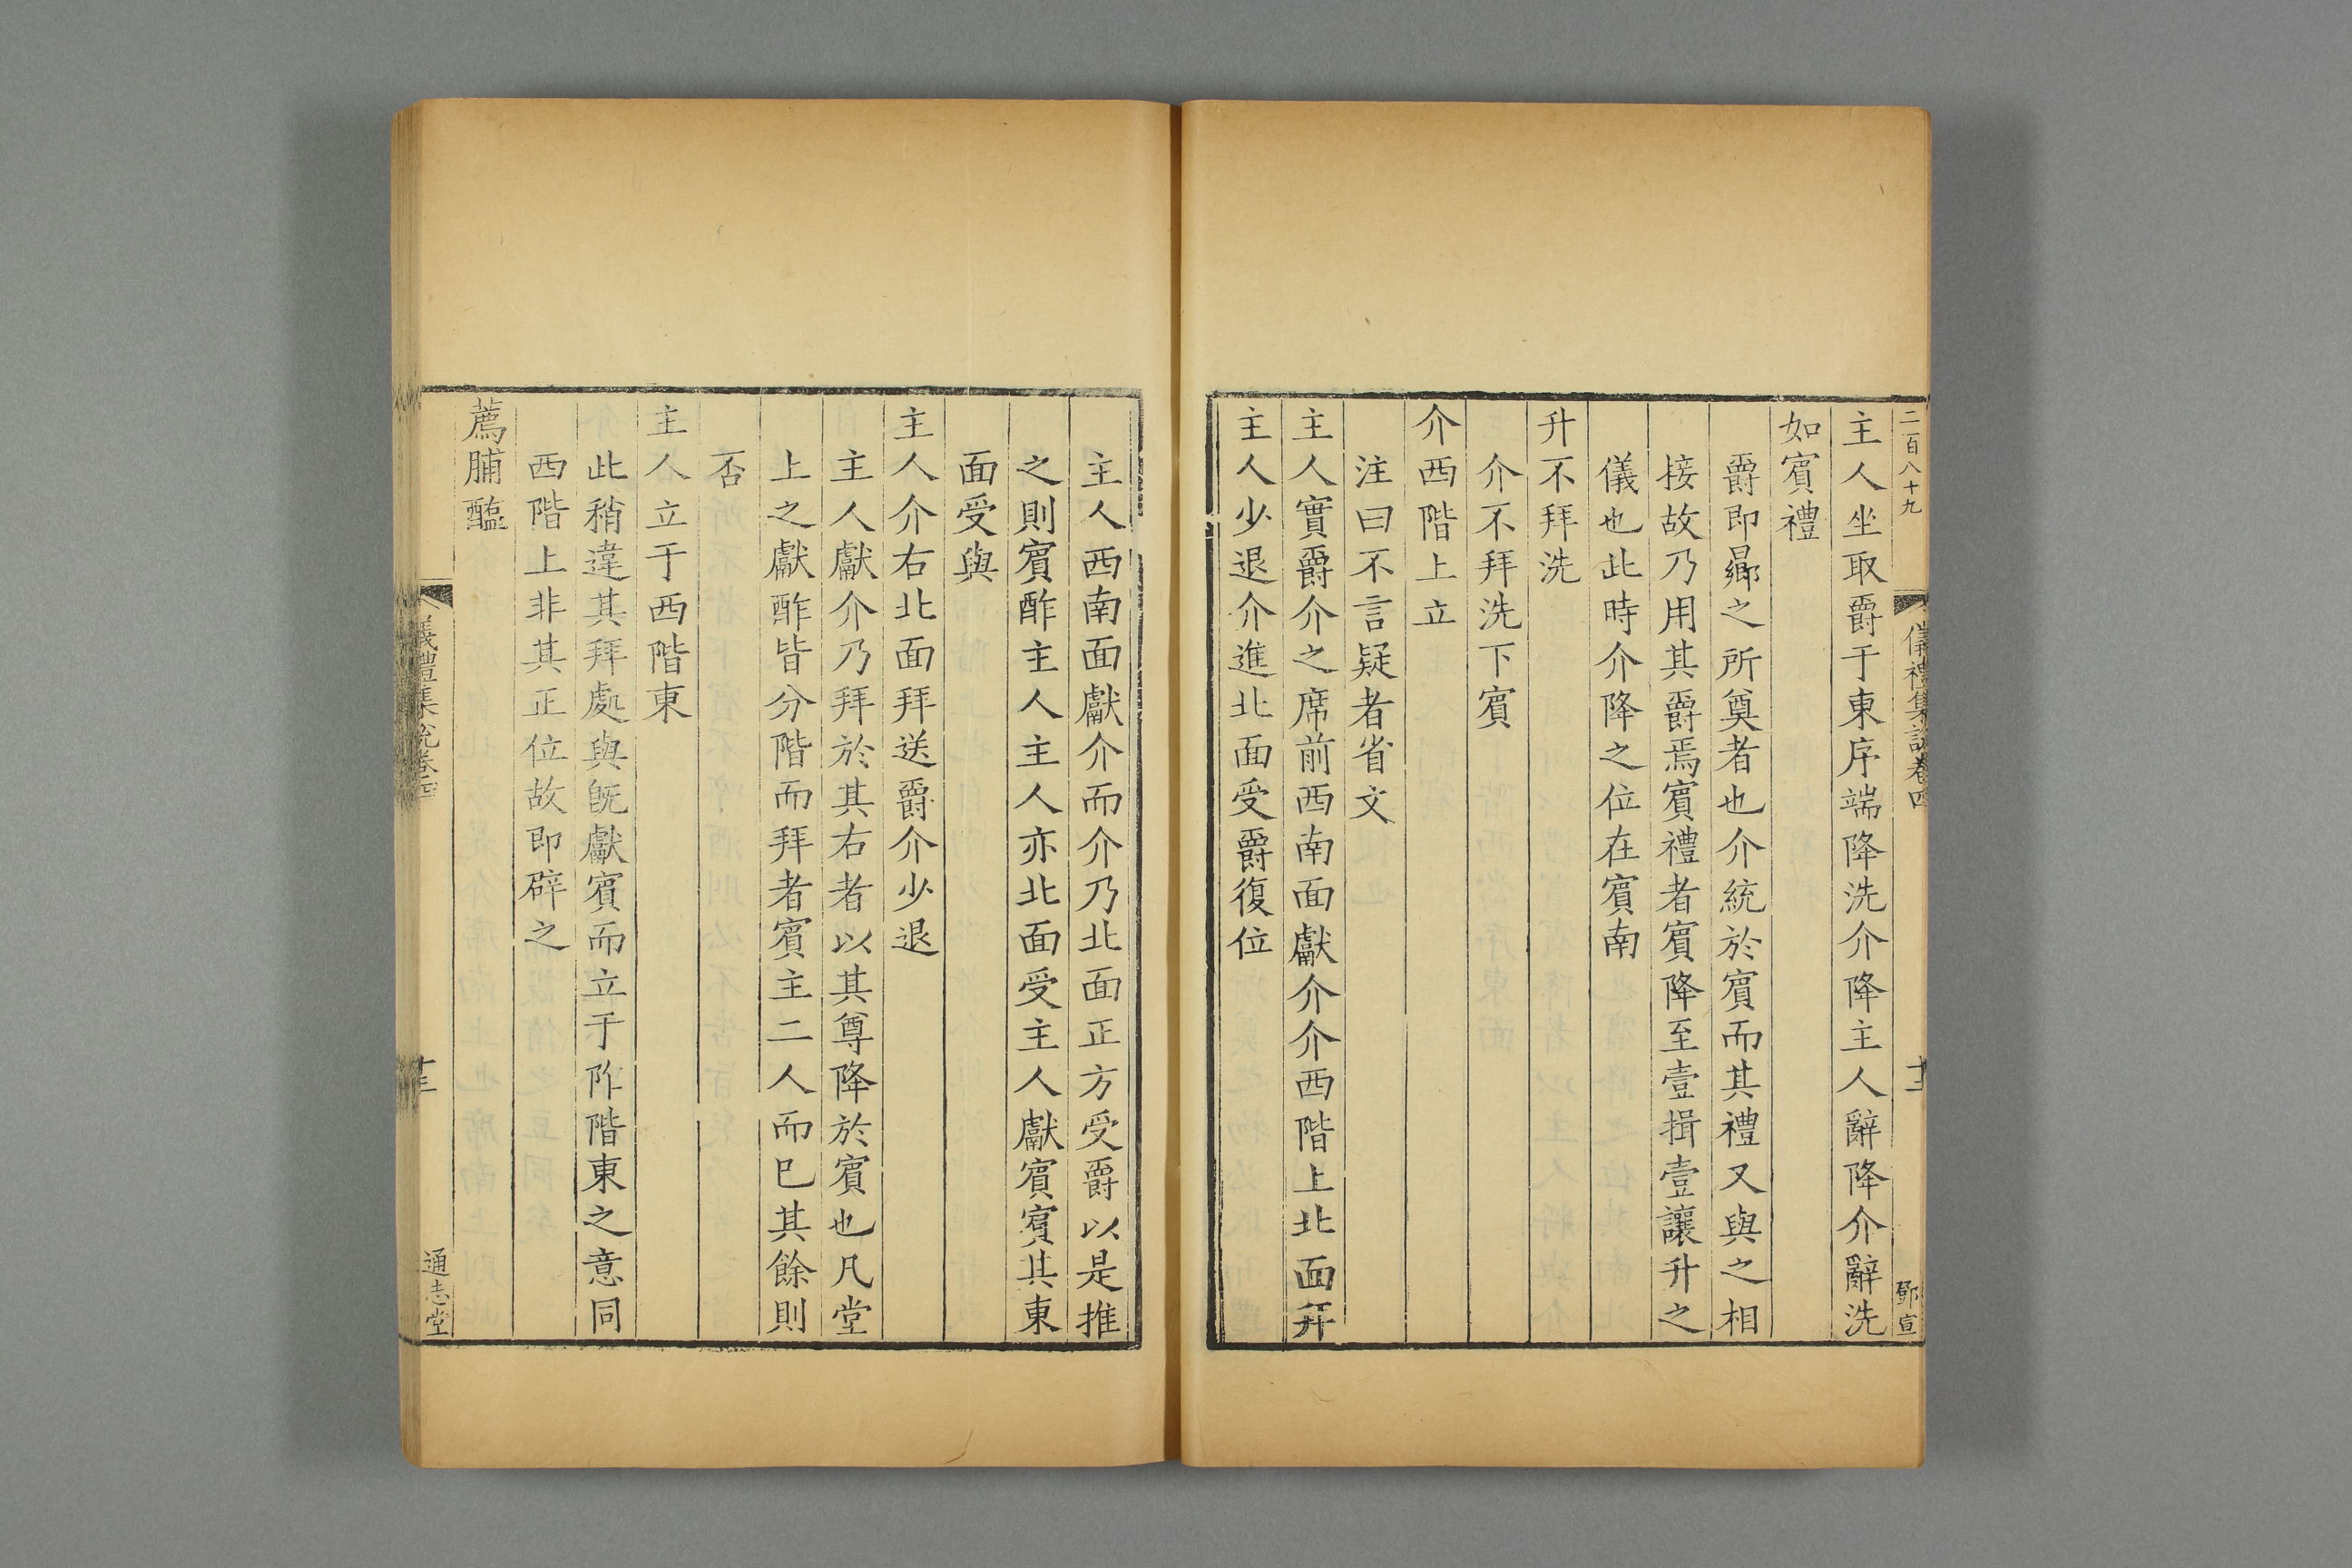 二百八十九
儀禮集說卷四
十二
鄧宣
主人坐取爵于東序端降洗介降主人辭降介辭洗
如賓禮
爵即曏之所奠者也介統於賓而其禮又與之相
接故乃用其爵焉賓禮者賓降至壹揖壹讓升之
儀也此時介降之位在賓南
升不拜洗
介不拜洗下賓
介西階上立
注曰不言疑者省文
主人實爵介之席前西南面獻介介西階上北面拜
主人少退介進北面受爵復位
主人西南面獻介而介乃北面正方受爵以是推
之則賓酢主人主人亦北面受主人獻賓賓其東
面受與
主人介右北面拜送爵介少退
主人獻介乃拜於其右者以其尊降於賓也凡堂
上之獻酢皆分階而拜者賓主二人而已其餘則
否
主人立于西階東
此稍違其拜處與既獻賓而立于阼階東之意同
西階上非其正位故即辟之
薦脯醢
儀禮集說卷四
十三
通志堂